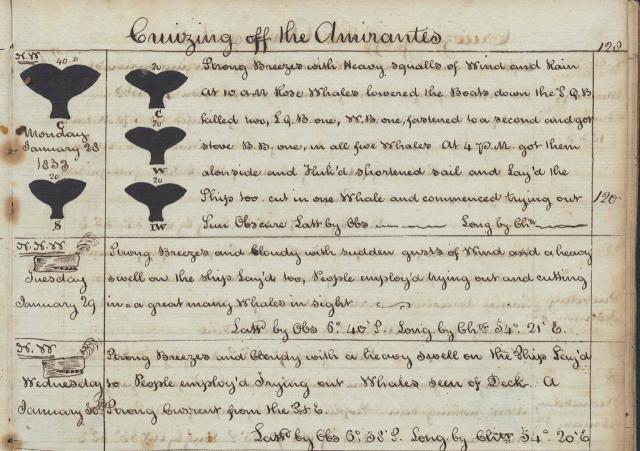 Cruizing off the Amirantes
128
N.W
40
C
Monday
January 28
1833
20
S
20
C
20
W
20
IW
Strong Breezes with Heavy squalls of Wind and Rain
At 10 AM Rose Whales lowered the Boats down the S.Q.B
killed two, L.Q.B. one, W.B. one, fastened to a second and got
stove B.B. one, in all five Whales At 4 P.M. got them
alonside and Fluk'd shortened sail and Lay'd the
Ship too. cut in one Whale and commenced trying out
120
Sun Obscure Latt by Obs Long by Chr
N.N.W
Tuesday
January 29
Strong Breezes and Cloudy with sudden gusts of Wind and a heavy
swell on the ship Lay'd too, People employ'd trying out and cutting
in a great many Whales in sight
Latt by Obs 6° 40' S. Long by Chr 54° 21' E.
N.W
Wednesday
January 30
Strong Breezes and Cloudy with a heavy swell on the Ship Lay'd
to People employ'd Trying out Whales seen of Deck. A
Strong Current from the
Latt by Obs 6° 38' S. Long by Chr 54° 20' E